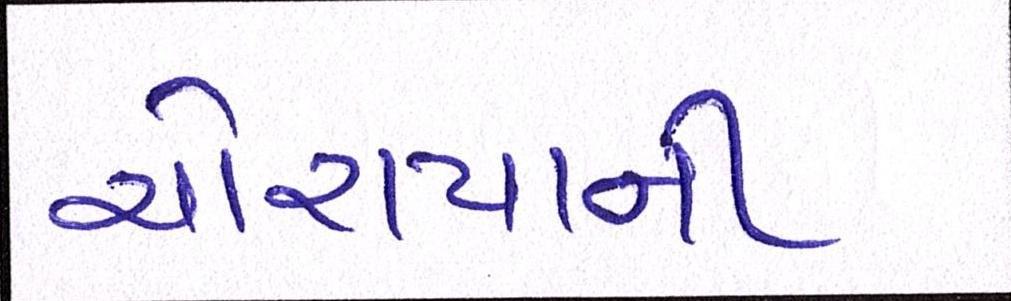 ચોરાયાની